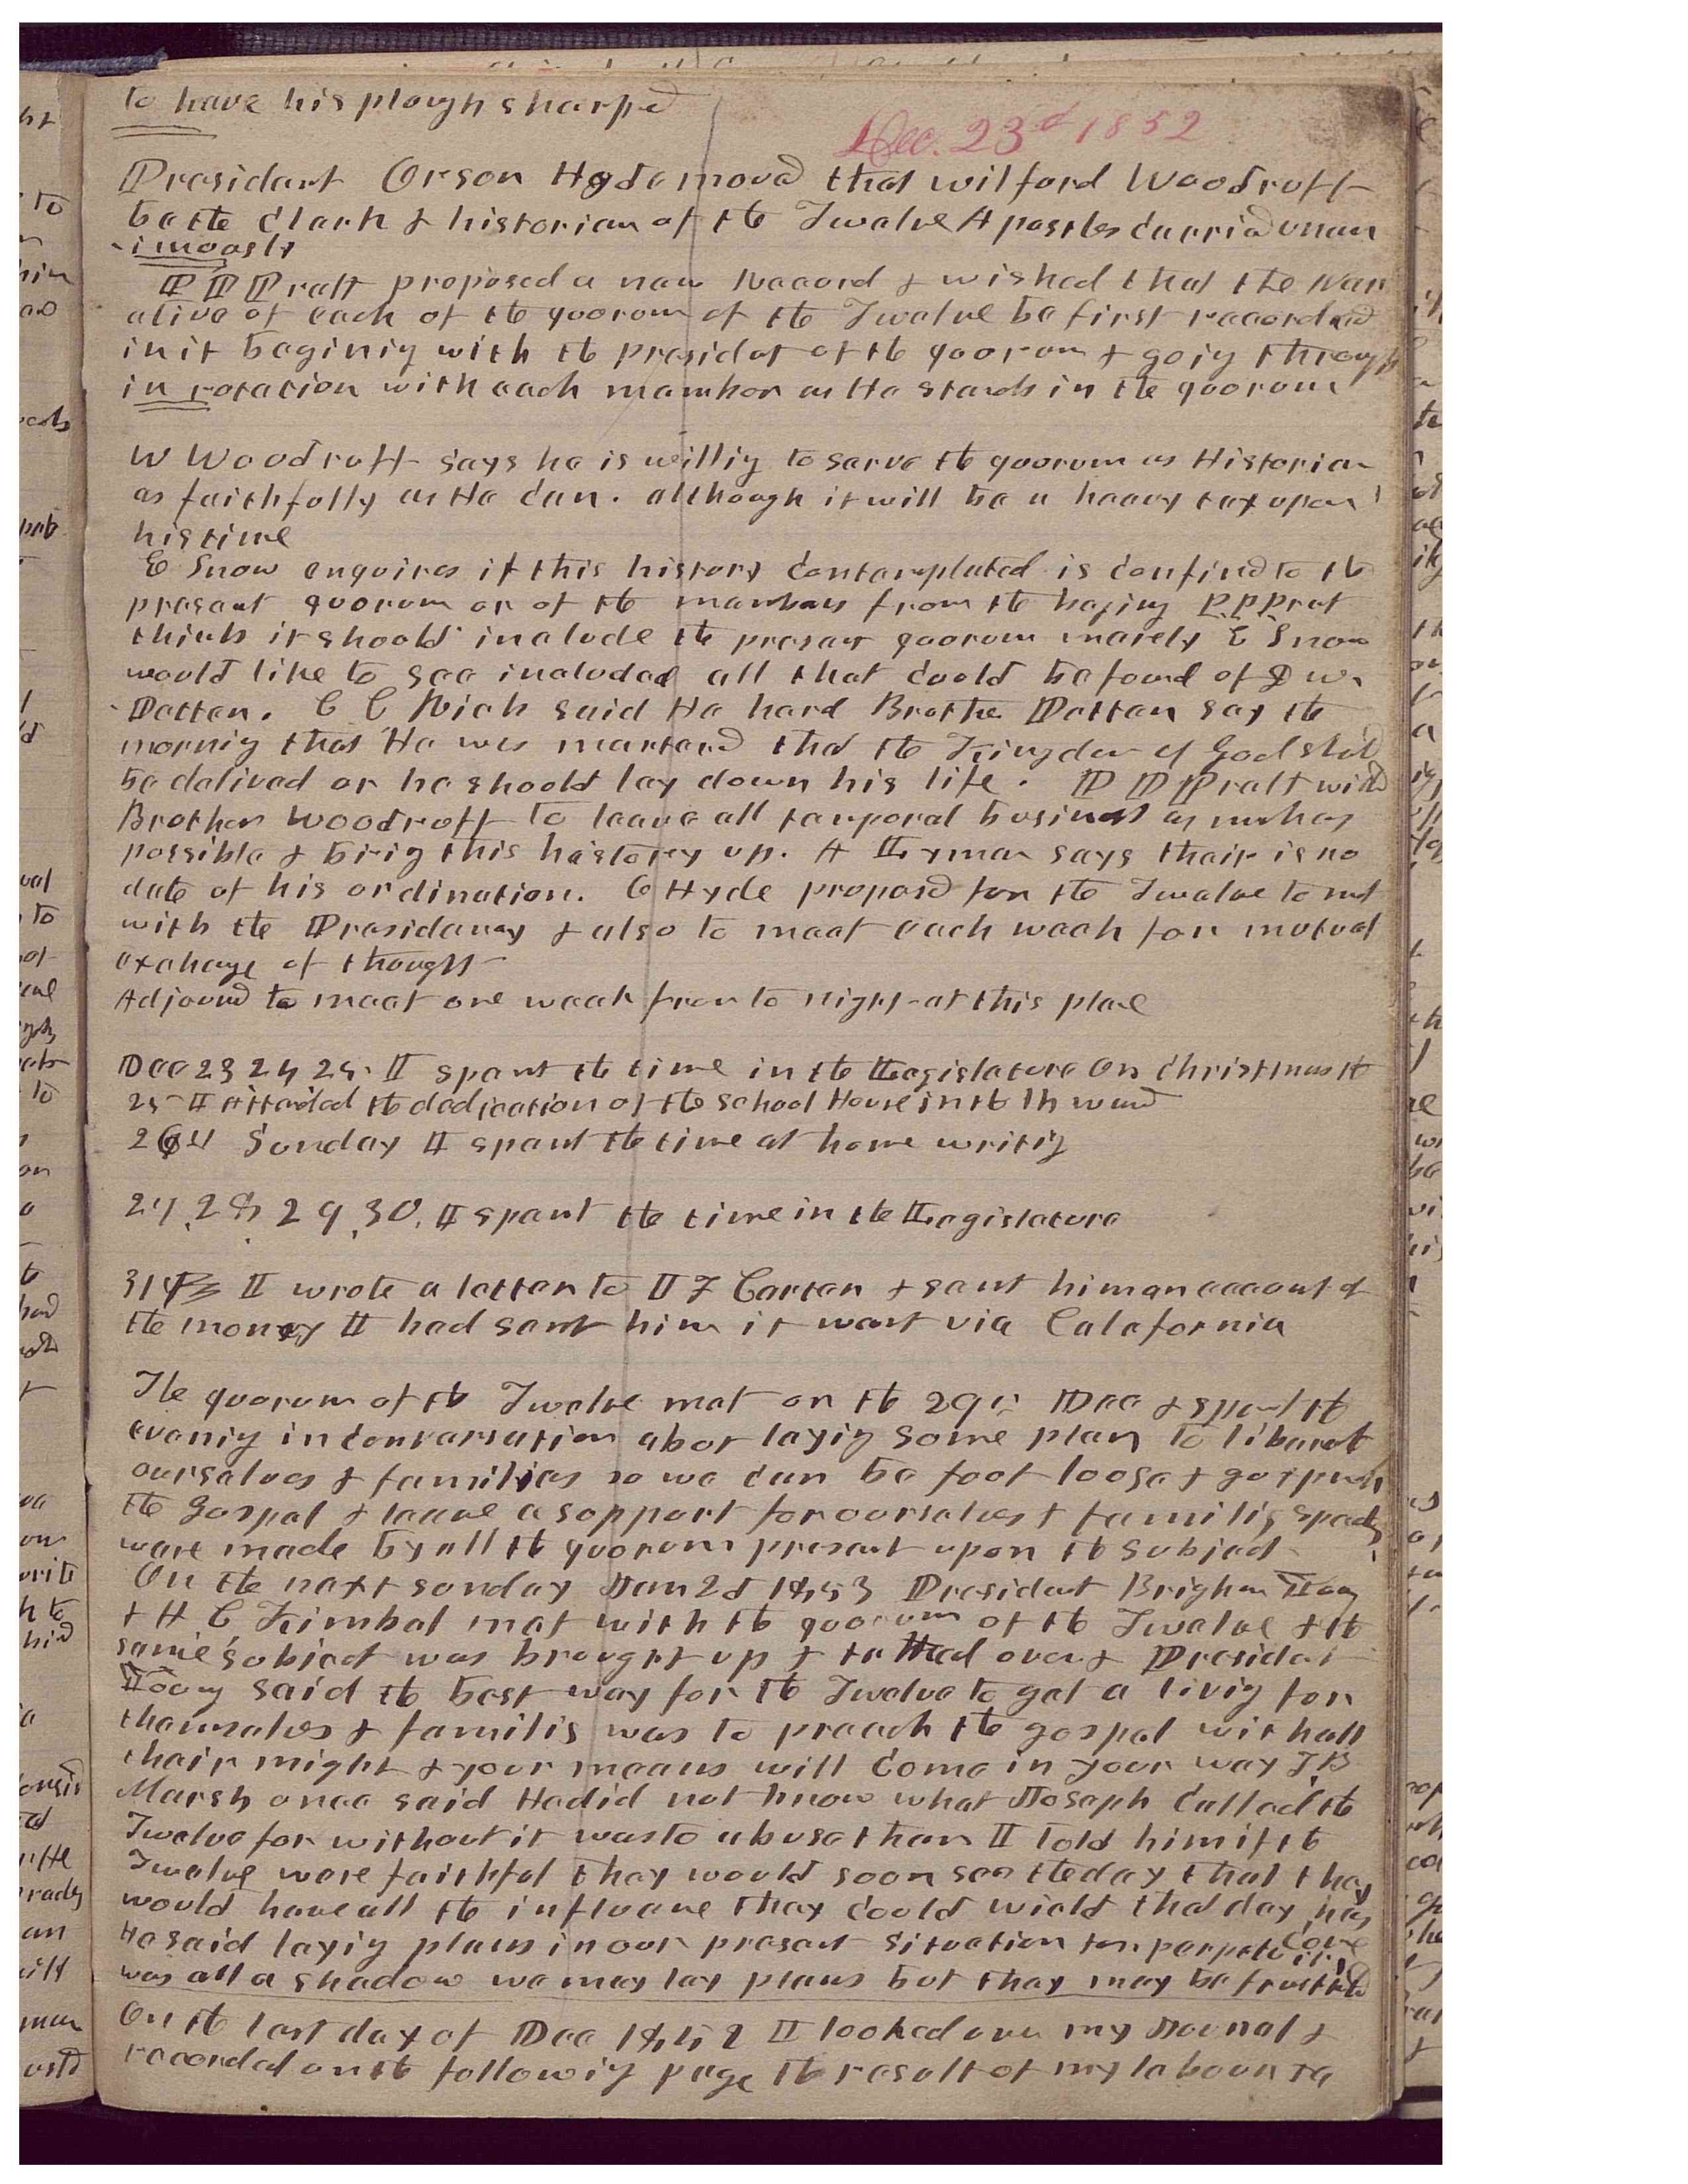 to have his plough sharpd
Dec. 23d 1852
President Orson Hyde moved that wilford Woodruff
be the Clerk & historian of the Twelve Apostles Carried unan
-imously
P P Pratt proposed a new Record & wished that the Nar
ative of each of the quorum of the Twelve be first recorded
in it begining with the presidet of the quorum & goig through
in rotation with each member as He stands in the quorum
W Woodruff says he is willig to serve the quorum as Historian
as faithfully as He Can. although it will be a heavy tax upon
his time
E Snow enquires if this history Contemplated is Confind to the
present quorum or of the members from the beging P. P. Prat
thinks it should include the present quorum marely E Snow
would like to see included all that Could be found of D W.
Patten. C C Rich said He hard Brothe Patten say the
mornig that He was marterd that the Kingdom of God shld
be delived or he should lay down his life. P P Pratt wishd
Brother Woodruff to leave all temporal business as much as
possible & brig this history up. A Lyman says their is no
date of his ordination. O Hyde proposd for the Twelve to met
with the Presidency & also to meet each week for mutual
exchange of thought
Adjournd to meet one week from to night at this place
Dec 23 24 25. I spent the time in the Legislature On Christmas the
25 I Attended the dedication of the School House in the 14 ward
26th Sunday I spent the time at home writig
27. 28 29. 30. I spent the time in the Legislature
31st I wrote a letter to I F Carter & sent him an account of
the money I had sent him it went via Calafornia
The quorum of the Twelve met on the 29th Dec & spent the
evenig in Conversation about layig some plan to liberate
ourselves & families so we can be foot loose & go & preach
the gospel & leave a support for ourselves & familis speeches
were made by all the quorum present upon the subject
On the next sunday Jan 2d 1853 President Brigham Young
& H C Kimbal met with the quorum of the Twelve & the
same subject was brought up & talked over & Presidet
Young said the best way for the Twelve to get a livig for
themselves & familis was to preach the gospel with all
their might & your means will Come in your way T B
Marsh once said He did not know what Joseph Called the
Twelve for without it was to abuse them I told him if the
Twelve were faithful they would soon see the day that they
would have all the influence they Could wield that day has
Come
He said layig plans in our present situation for perpetuitis
was all a shadow we may lay plans but they may be frustrated
On the last day of Dec 1852 I looked over my Journal &
recorded on the followig page the result of my labours &c